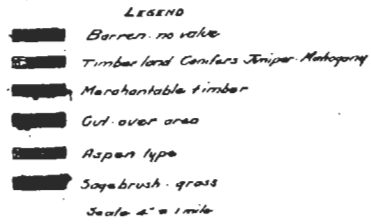 LEGEND
Barren. no value
Timberland Conifers Juniper. Mahogany
Merchantable timber
Cut. over area
Aspen type
Sagebrush. grass
Scale 4" = 1 mile